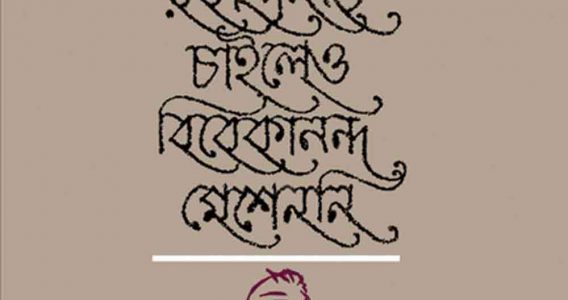 চাইলেও
বিবেকানন্দ
মেশেননি